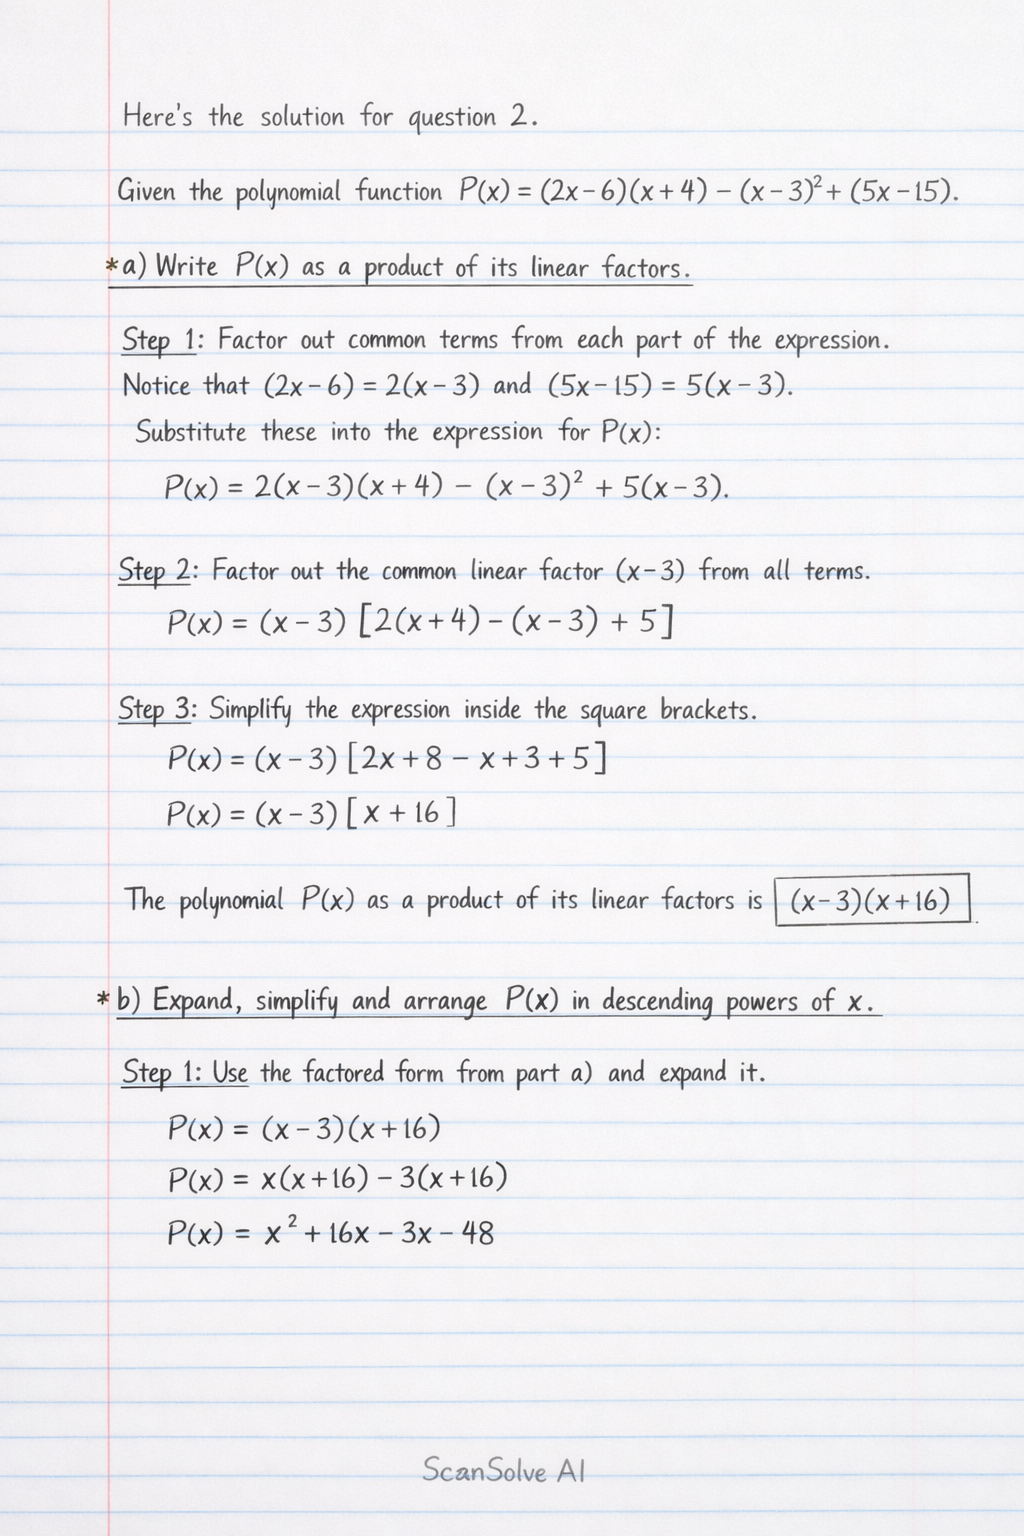 Here's the solution for question 2.
Given the polynomial function P(x) = (2x-6)(x+4) - (x-3)² + (5x-15).
*a) Write P(x) as a product of its linear factors.
Step 1: Factor out common terms from each part of the expression.
Notice that (2x-6) = 2(x-3) and (5x-15) = 5(x-3).
Substitute these into the expression for P(x):
P(x) = 2(x-3)(x+4) - (x-3)² + 5(x-3).
Step 2: Factor out the common linear factor (x-3) from all terms.
P(x) = (x-3) [2(x+4) - (x-3) + 5]
Step 3: Simplify the expression inside the square brackets.
P(x) = (x-3) [2x+8 - x+3+5]
P(x) = (x-3) [x + 16]
The polynomial P(x) as a product of its linear factors is (x-3)(x+16).
*b) Expand, simplify and arrange P(x) in descending powers of x.
Step 1: Use the factored form from part a) and expand it.
P(x) = (x-3)(x+16)
P(x) = x(x+16) - 3(x+16)
P(x) = x² + 16x - 3x - 48
ScanSolve AI